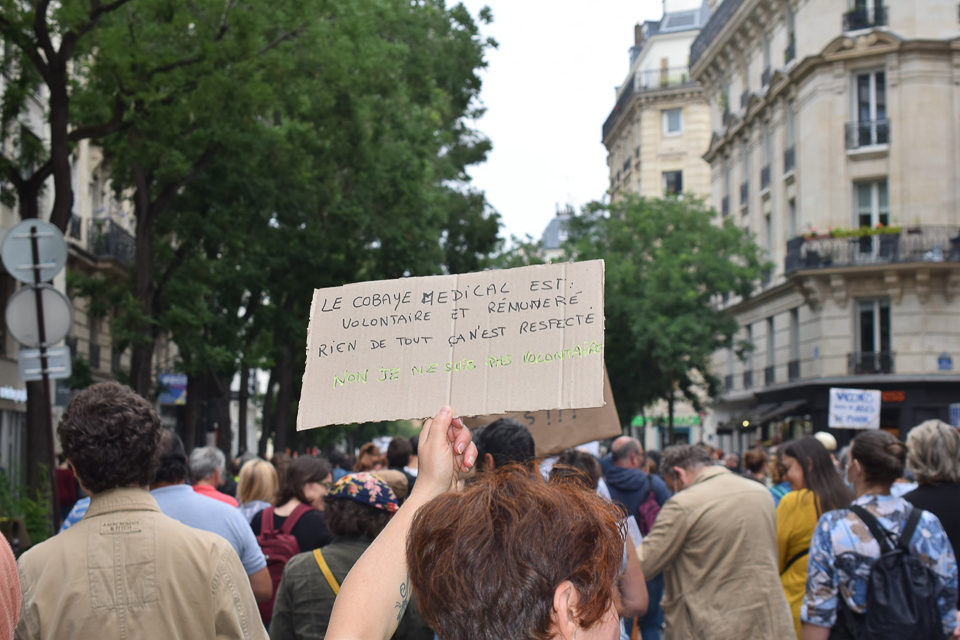 LE COBAYE MEDICAL EST :
VOLONTAIRE ET RÉMUNERÉ.
RIEN DE TOUT ÇA N'EST RESPECTÉ
NON JE NE SUIS PAS VOLONTAIRE
S !!!